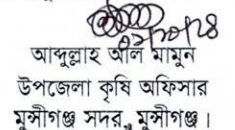 আব্দুল্লাহ আল মামুন
উপজেলা কৃষি অফিসার
মুন্সীগঞ্জ সদর, মুন্সীগঞ্জ।